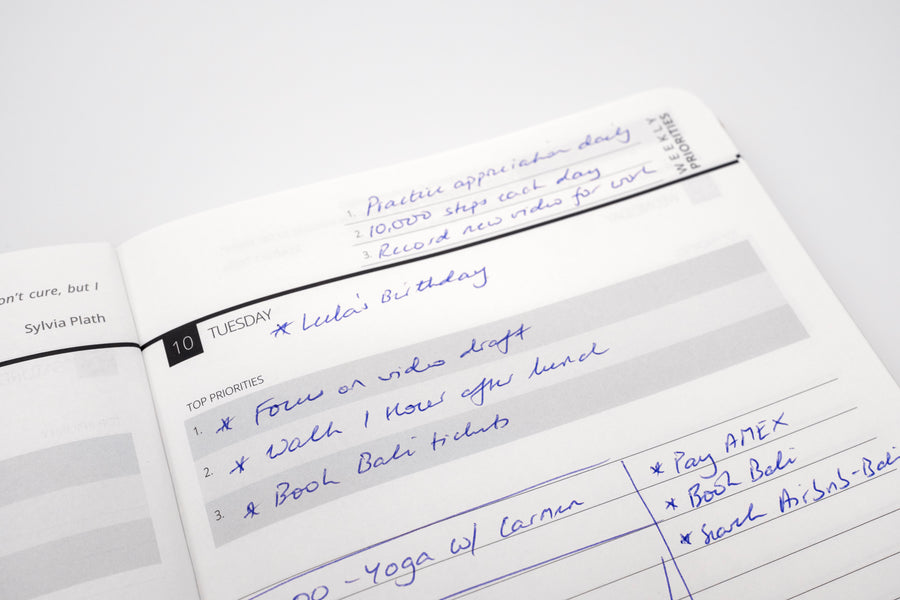 on't cure, but I
Sylvia Plath
WEEKLY
PRIORITIES
1. Practice appreciation daily
2. 10,000 steps each day
3. Record new video for work
10 TUESDAY * Lula's Birthday
TOP PRIORITIES
1. * Focus on video draft
2. * Walk 1 Hour after lunch
3. * Book Bali tickets
00 - Yoga w/ Carmen
* Pay AMEX
* Book Bali
* Search Airbnb-Bali